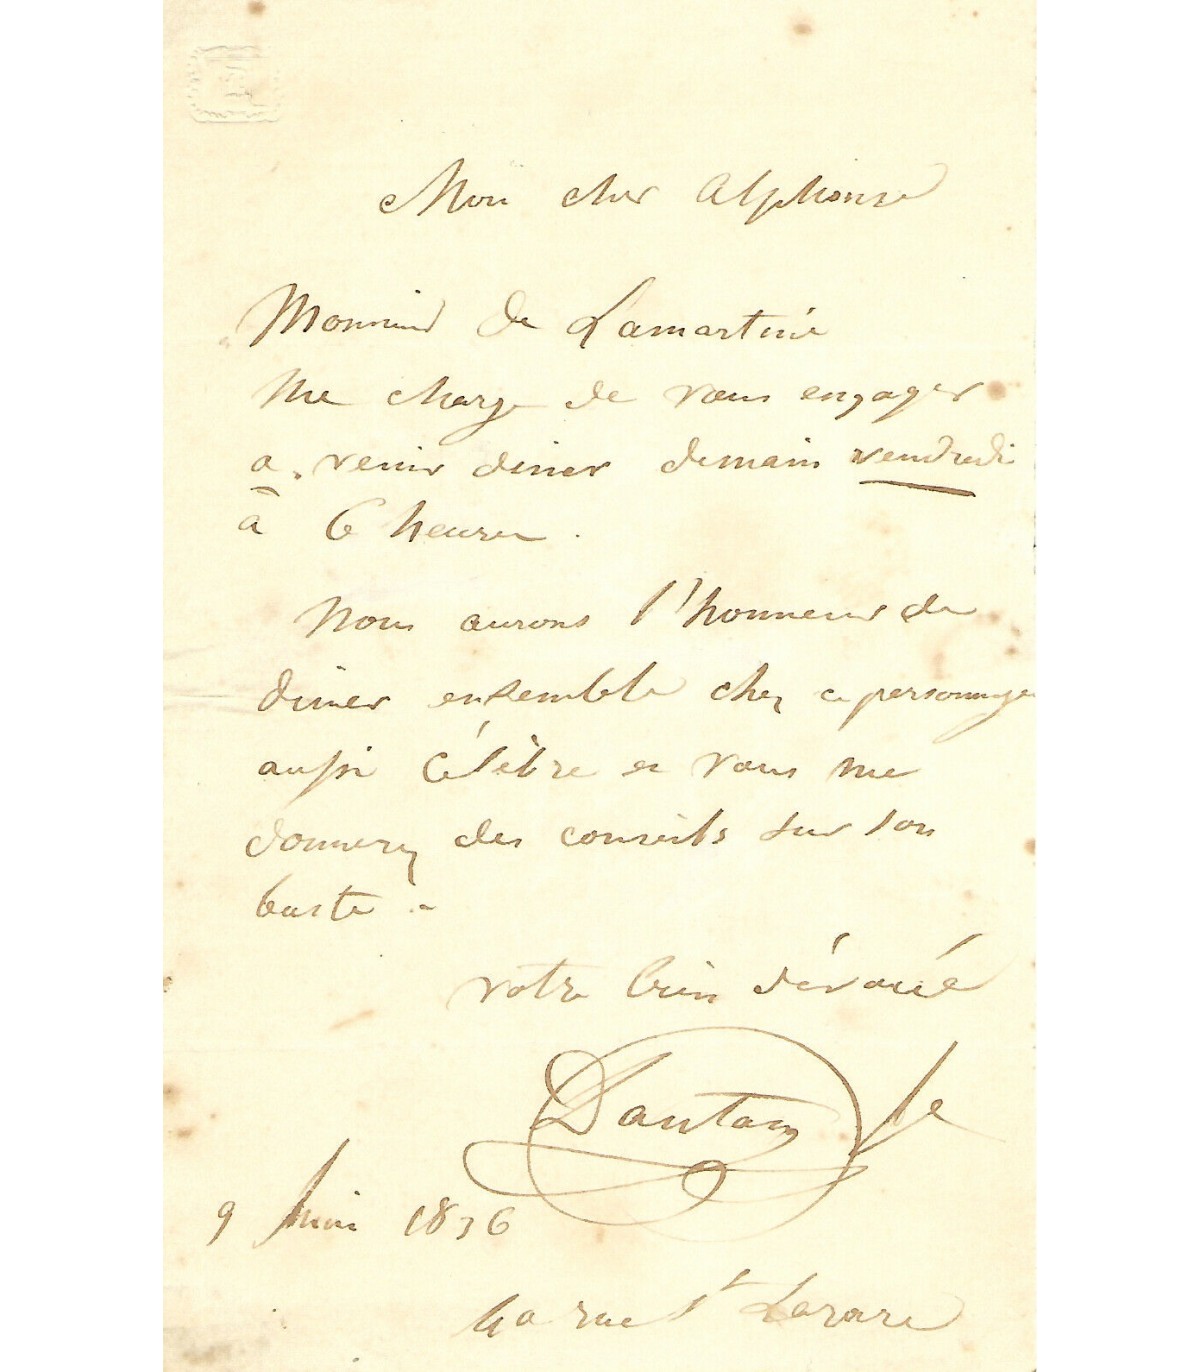 Mon cher Alphonse
Monsieur de Lamartine
me charge de vous engager
a venir diner demain vendredi
à 6 heures.
Nous aurons l'honneur de
diner ensemble chez ce personnage
aussi célèbre et vous me
donnerez des conseils sur son
buste.
votre bien dévoué
Dantan Je
9 Juin 1836
40 rue St Lazare